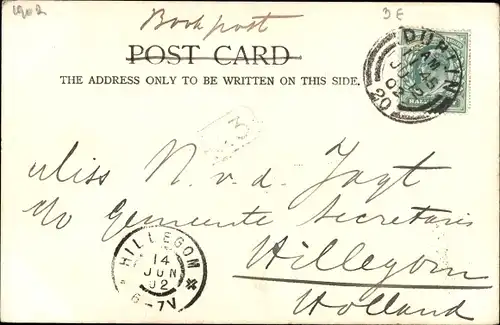 1902
3E
Book post
POST CARD
THE ADDRESS ONLY TO BE WRITTEN ON THIS SIDE.
DUBLIN
AM
45
JU
02
20
3
Miss N. v. d. Jagt
c/o Gemeente Secretaris
Hillegom
Holland
HILLEGOM
14
JUN
02
6-7V